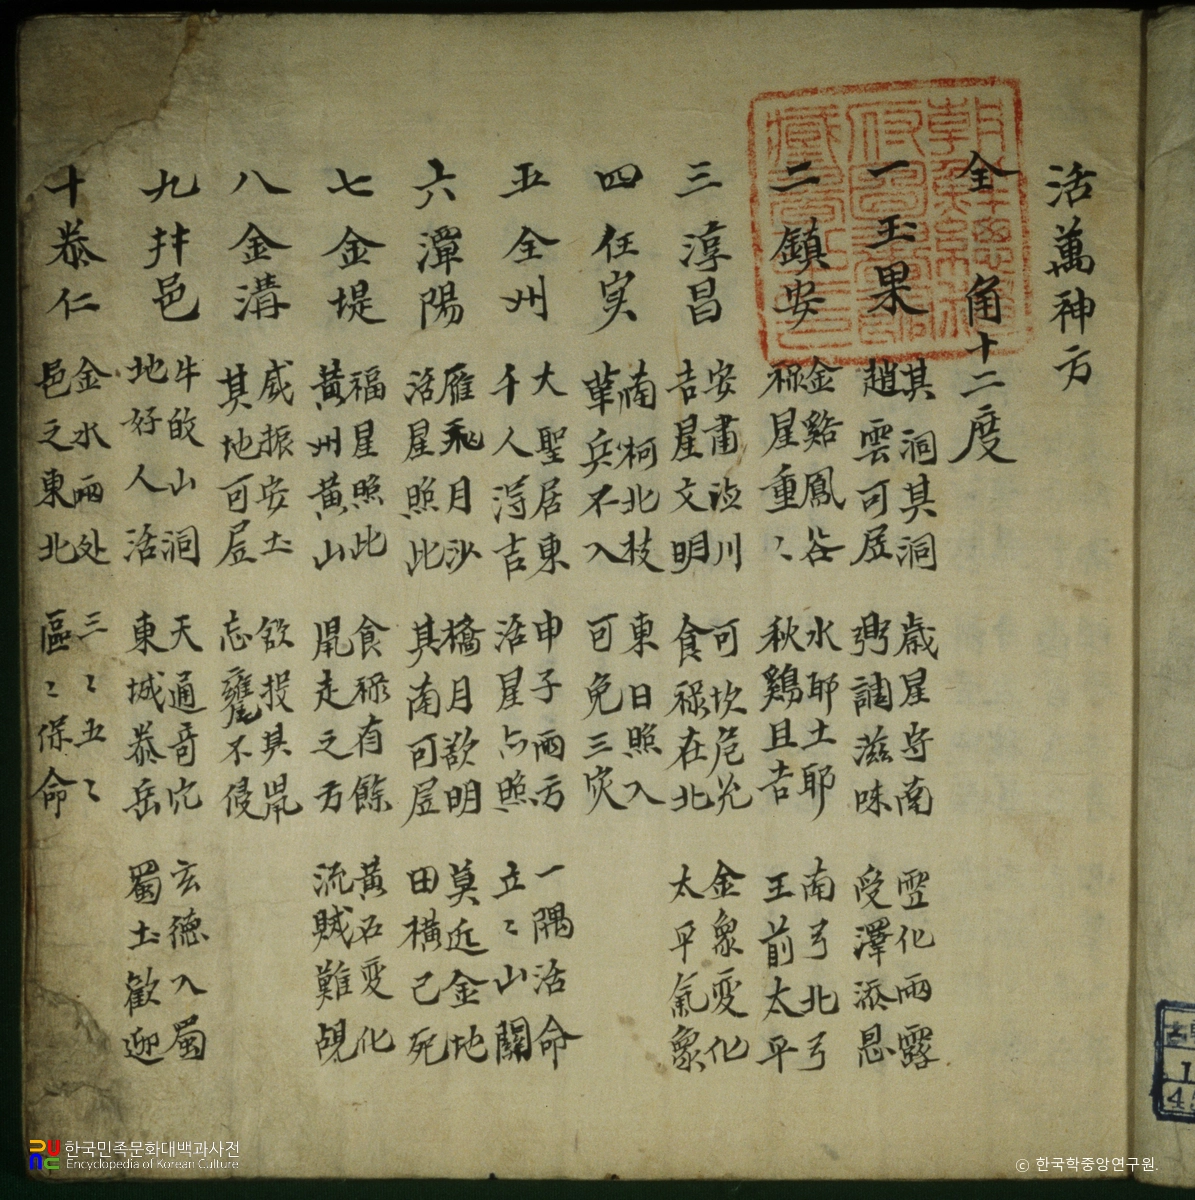 活萬神方
全 角十二度
一玉果 其洞其洞 趙雲可居 歲星守南 弼調滋味 雲化雨露 受澤添恩
二鎮安 金谿鳳谷 祿星重〻 水耶土耶 秋鷄且吉 南弓北弓 王前太平
三淳昌 安肅 川 吉星文明 可坎危兌 食祿在北 金象變化 太平氣象
四任実 南柯北枝 革兵不入 東日照入 可免三灾
五全州 大聖居東 千人得吉 申子兩方 活星占照 一隅活命 立〻山關
六潭陽 雁飛月沙 活星照比 橋月欲明 其南可居 莫近金地 田橫已死
七金堤 福星照比 黃州黃山 食祿有餘 鼠走之方 黃石變化 流賊難覘
八金溝 威振安土 其地可居 欲投其鼠 忌甕不侵
九井邑 牛 山洞 地好人活 天通奇穴 東城泰岳 玄德入蜀 蜀土歡迎
十泰仁 金水兩处 邑之東北 三〻五〻 區〻保命
한국민족문화대백과사전
Encyclopedia of Korean Culture
© 한국학중앙연구원.